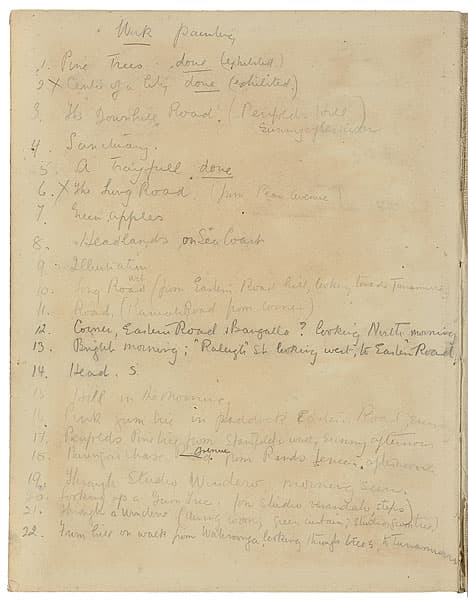 Work painting
1. Pine Trees. done (exhibited)
2 X Centre of a City done (exhibited.)
3. The Downhill Road. (Penfolds hill
Sunny afternoon
4. Sanctuary.
5. A Trayfull done
6. X The Long Road (from Pean avenue)
7. Green apples
8. Headlands on Sea Coast
9. Illumination
10. Long Road (from Eastern Road hill, looking towards Turramurra
11. Road, ( Road from corner)
12. Corner, Eastern Road & Bangalla ? looking North, morning
13. Bright morning; "Raleigh" St looking west, to Eastern Road,
14. Head. S
15. Hill in the morning,
16. Pink gum tree in paddock Eastern Road,
17. Penfolds Pine tree from wind, sunny afternoon
18. avenue from Rands fence, afternoon
19. Through Studio Window morning
20. Looking up a Gum Tree (on studio verandah steps)
21. Through a Window (dining room, green curtain; studio
22. Gum tree on walk from Wahroonga, looking through trees, to Turramurra